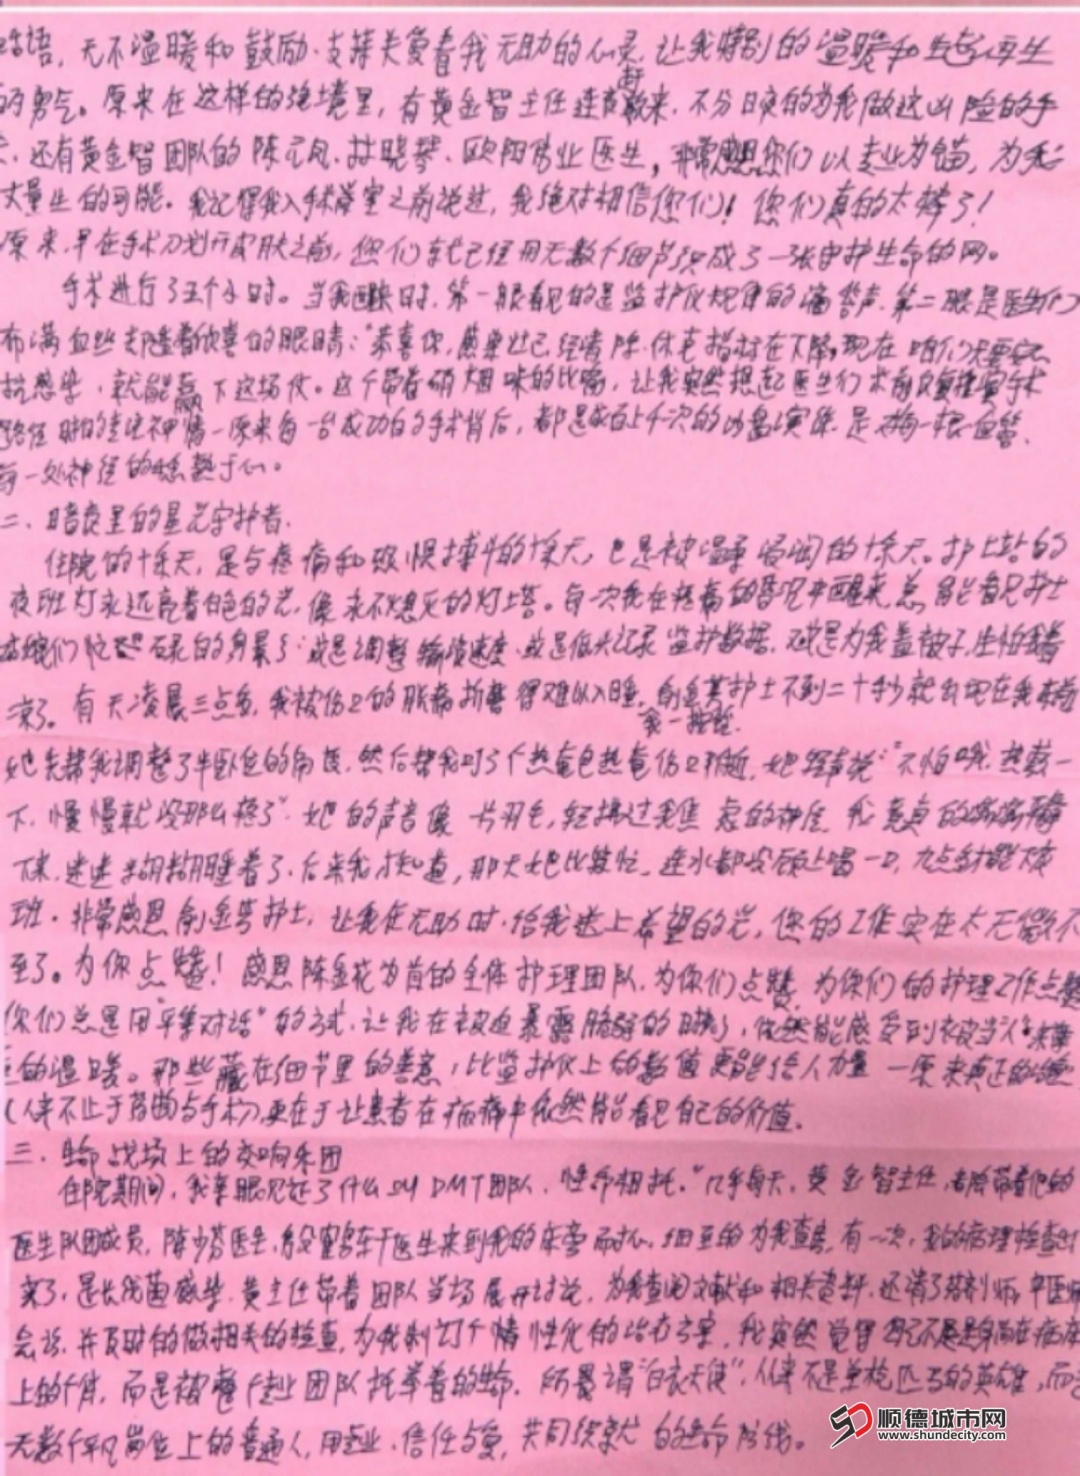 话语，无不温暖和鼓励、支撑关爱着我无助的心灵，让我特别的温暖和生起再生
的勇气。原来在这样的绝境里，有黄金智主任连夜赶来，不分日夜的为我做这凶险的手
术，还有黄金智团队的陈元凤、林晓琴、欧阳伟业医生，非常感恩你们以专业为锚，为我
丈量生的可能。我记得我入手术室之前说过，我绝对相信您们！您们真的太棒了！
原来，早在手术刀划开皮肤之前，您们就已经用无数个细节织成了一张守护生命的网。
手术进行了五个小时。当我醒来时，第一眼看见的是监护仪规律的滴答声，第二眼是医生们
布满血丝却噙着欣喜的眼睛："恭喜你，感染灶已经清除，休克指标在下降，现在咱们只要
抗感染，就能赢下这场仗。"这个带着硝烟味的比喻，让我突然想起医生们术前反复推演手术
路径时的专注神情—原来每一台成功的手术背后，都是成百上千次的沙盘演练，是对每一根血管、
每一处神经的熟于心。
二、暗夜里的星光守护者
住院的十余天，是与疼痛和恐惧搏斗的十余天，也是被温柔浸润的十余天。护士站的
夜班灯永远亮着白色的光，像永不熄灭的灯塔。每次我在疼痛的昏沉中醒来，总能看见护士
姑娘们忙碌的身影：或是调整输液速度，或是低头记录监护数据，或是为我盖被子，生怕我着
凉了。有天凌晨三点多，我被伤口的胀痛折磨得难以入睡，我一按铃，护士不到二十秒就出现在我床前
她先帮我调整了半卧位的角度，然后帮我叮了个热奄包热奄伤口附近，她轻声说："不怕哦，热敷一
下，慢慢就没那么疼了"她的声音像一片羽毛，轻拂过我焦虑的神经，我竟真的渐渐平静
下来，迷迷糊糊睡着了，后来我才知道，那天她比较忙，连水都没顾上喝一口，九点多才能下夜
班，非常感恩护士，让我在无助时，给我送上希望的光，您的工作实在太无微不
至了。为你点赞！感恩陈金花为首的全体护理团队，为你们点赞，为你们的护理工作点赞
你们总是用"平等对话"的方式，让我在被迫暴露脆弱的时候，依然能感受到被当"人"来尊
重的温暖。那些藏在细节里的善意，比监护仪上的数值更能给人力量—原来真正的治愈
从来不止于药物与手术，更在于让患者在病痛中依然能看见自己的价值。
三、生命战场上的交响乐团
住院期间，我亲眼见证了什么叫DMT团队，"性命相托。"几乎每天，黄金智主任，都会带着他的
医生队团成员，陈少芬医生，若干医生来到我的床旁，耐心、细至的为我查房，有一次，我的病理检查出
来了，是长戌菌感染，黄主任带着团队当场展开讨论，为我查阅文献和相关资料，还请了药剂师，中医师
会诊，并及时的做相关的检查，为我制订个情性化的治疗方案，我突然觉得自己不是躺在病床
上的个体，而是被整个专业团队托举着的生命。所谓"白衣天使"，从来不是单枪匹马的英雄，而是
无数个平凡岗位上的普通人，用专业、信任与爱，共同织就的生命防线。
顺德城市网
www.shundecity.com